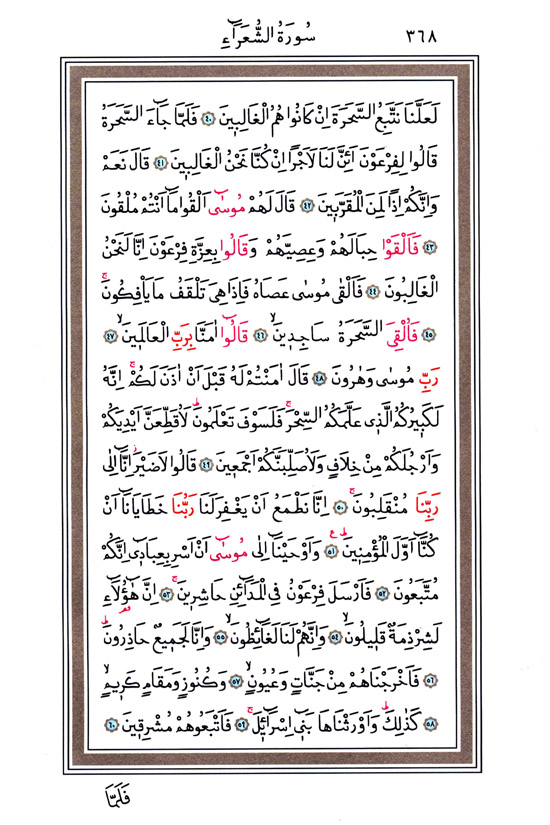 ٣٦٨ سُورَةُ الشُّعَرَاءِ
لَعَلَّنَا نَتَّبِعُ السَّحَرَةَ اِنْ كَانُوا هُمُ الْغَالِبٖينَ ﴿٤٠﴾ فَلَمَّا جَٓاءَ السَّحَرَةُ
قَالُوا لِفِرْعَوْنَ اَئِنَّ لَنَا لَاَجْرًا اِنْ كُنَّا نَحْنُ الْغَالِبٖينَ ﴿٤١﴾ قَالَ نَعَمْ
وَاِنَّكُمْ اِذًا لَمِنَ الْمُقَرَّبٖينَ ﴿٤٢﴾ قَالَ لَهُمْ مُوسٰٓى اَلْقُوا مَٓا اَنْتُمْ مُلْقُونَ
﴿٤٣﴾ فَاَلْقَوْا حِبَالَهُمْ وَعِصِيَّهُمْ وَقَالُوا بِعِزَّةِ فِرْعَوْنَ اِنَّا لَنَحْنُ
الْغَالِبُونَ ﴿٤٤﴾ فَاَلْقٰى مُوسٰى عَصَاهُ فَاِذَا هِيَ تَلْقَفُ مَا يَاْفِكُونَۚ
﴿٤٥﴾ فَاُلْقِيَ السَّحَرَةُ سَاجِدٖينَۙ ﴿٤٦﴾ قَالُٓوا اٰمَنَّا بِرَبِّ الْعَالَمٖينَۙ ﴿٤٧﴾
رَبِّ مُوسٰى وَهٰرُونَ ﴿٤٨﴾ قَالَ اٰمَنْتُمْ لَهُ قَبْلَ اَنْ اٰذَنَ لَكُمْۚ اِنَّهُ
لَكَبٖيرُكُمُ الَّذٖي عَلَّمَكُمُ السِّحْرَۚ فَلَسَوْفَ تَعْلَمُونَۜ لَاُقَطِّعَنَّ اَيْدِيَكُمْ
وَاَرْجُلَكُمْ مِنْ خِلَافٍ وَلَاُصَلِّبَنَّكُمْ اَجْمَعٖينَ ﴿٤٩﴾ قَالُوا لَا ضَيْرَۘ اِنَّٓا اِلٰى
رَبِّنَا مُنْقَلِبُونَۚ ﴿٥٠﴾ اِنَّا نَطْمَعُ اَنْ يَغْفِرَ لَنَا رَبُّنَا خَطَايَانَٓا اَنْ
كُنَّٓا اَوَّلَ الْمُؤْمِنٖينَۜ ع ﴿٥١﴾ وَاَوْحَيْنَٓا اِلٰى مُوسٰٓى اَنْ اَسْرِ بِعِبَادٖٓي اِنَّكُمْ
مُتَّبَعُونَ ﴿٥٢﴾ فَاَرْسَلَ فِرْعَوْنُ فِي الْمَدَٓائِنِ حَاشِرٖينَۚ ﴿٥٣﴾ اِنَّ هٰٓؤُلَٓاءِ
لَشِرْذِمَةٌ قَلٖيلُونَۙ ﴿٥٤﴾ وَاِنَّهُمْ لَنَا لَغَٓائِظُونَۙ ﴿٥٥﴾ وَاِنَّا لَجَمٖيعٌ حَاذِرُونَۜ
﴿٥٦﴾ فَاَخْرَجْنَاهُمْ مِنْ جَنَّاتٍ وَعُيُونٍۙ ﴿٥٧﴾ وَكُنُوزٍ وَمَقَامٍ كَرٖيمٍۙ
﴿٥٨﴾ كَذٰلِكَۜ وَاَوْرَثْنَاهَا بَنٖٓي اِسْرَٓائٖلَۚ ﴿٥٩﴾ فَاَتْبَعُوهُمْ مُشْرِقٖينَ ﴿٦٠﴾
فَلَمَّا